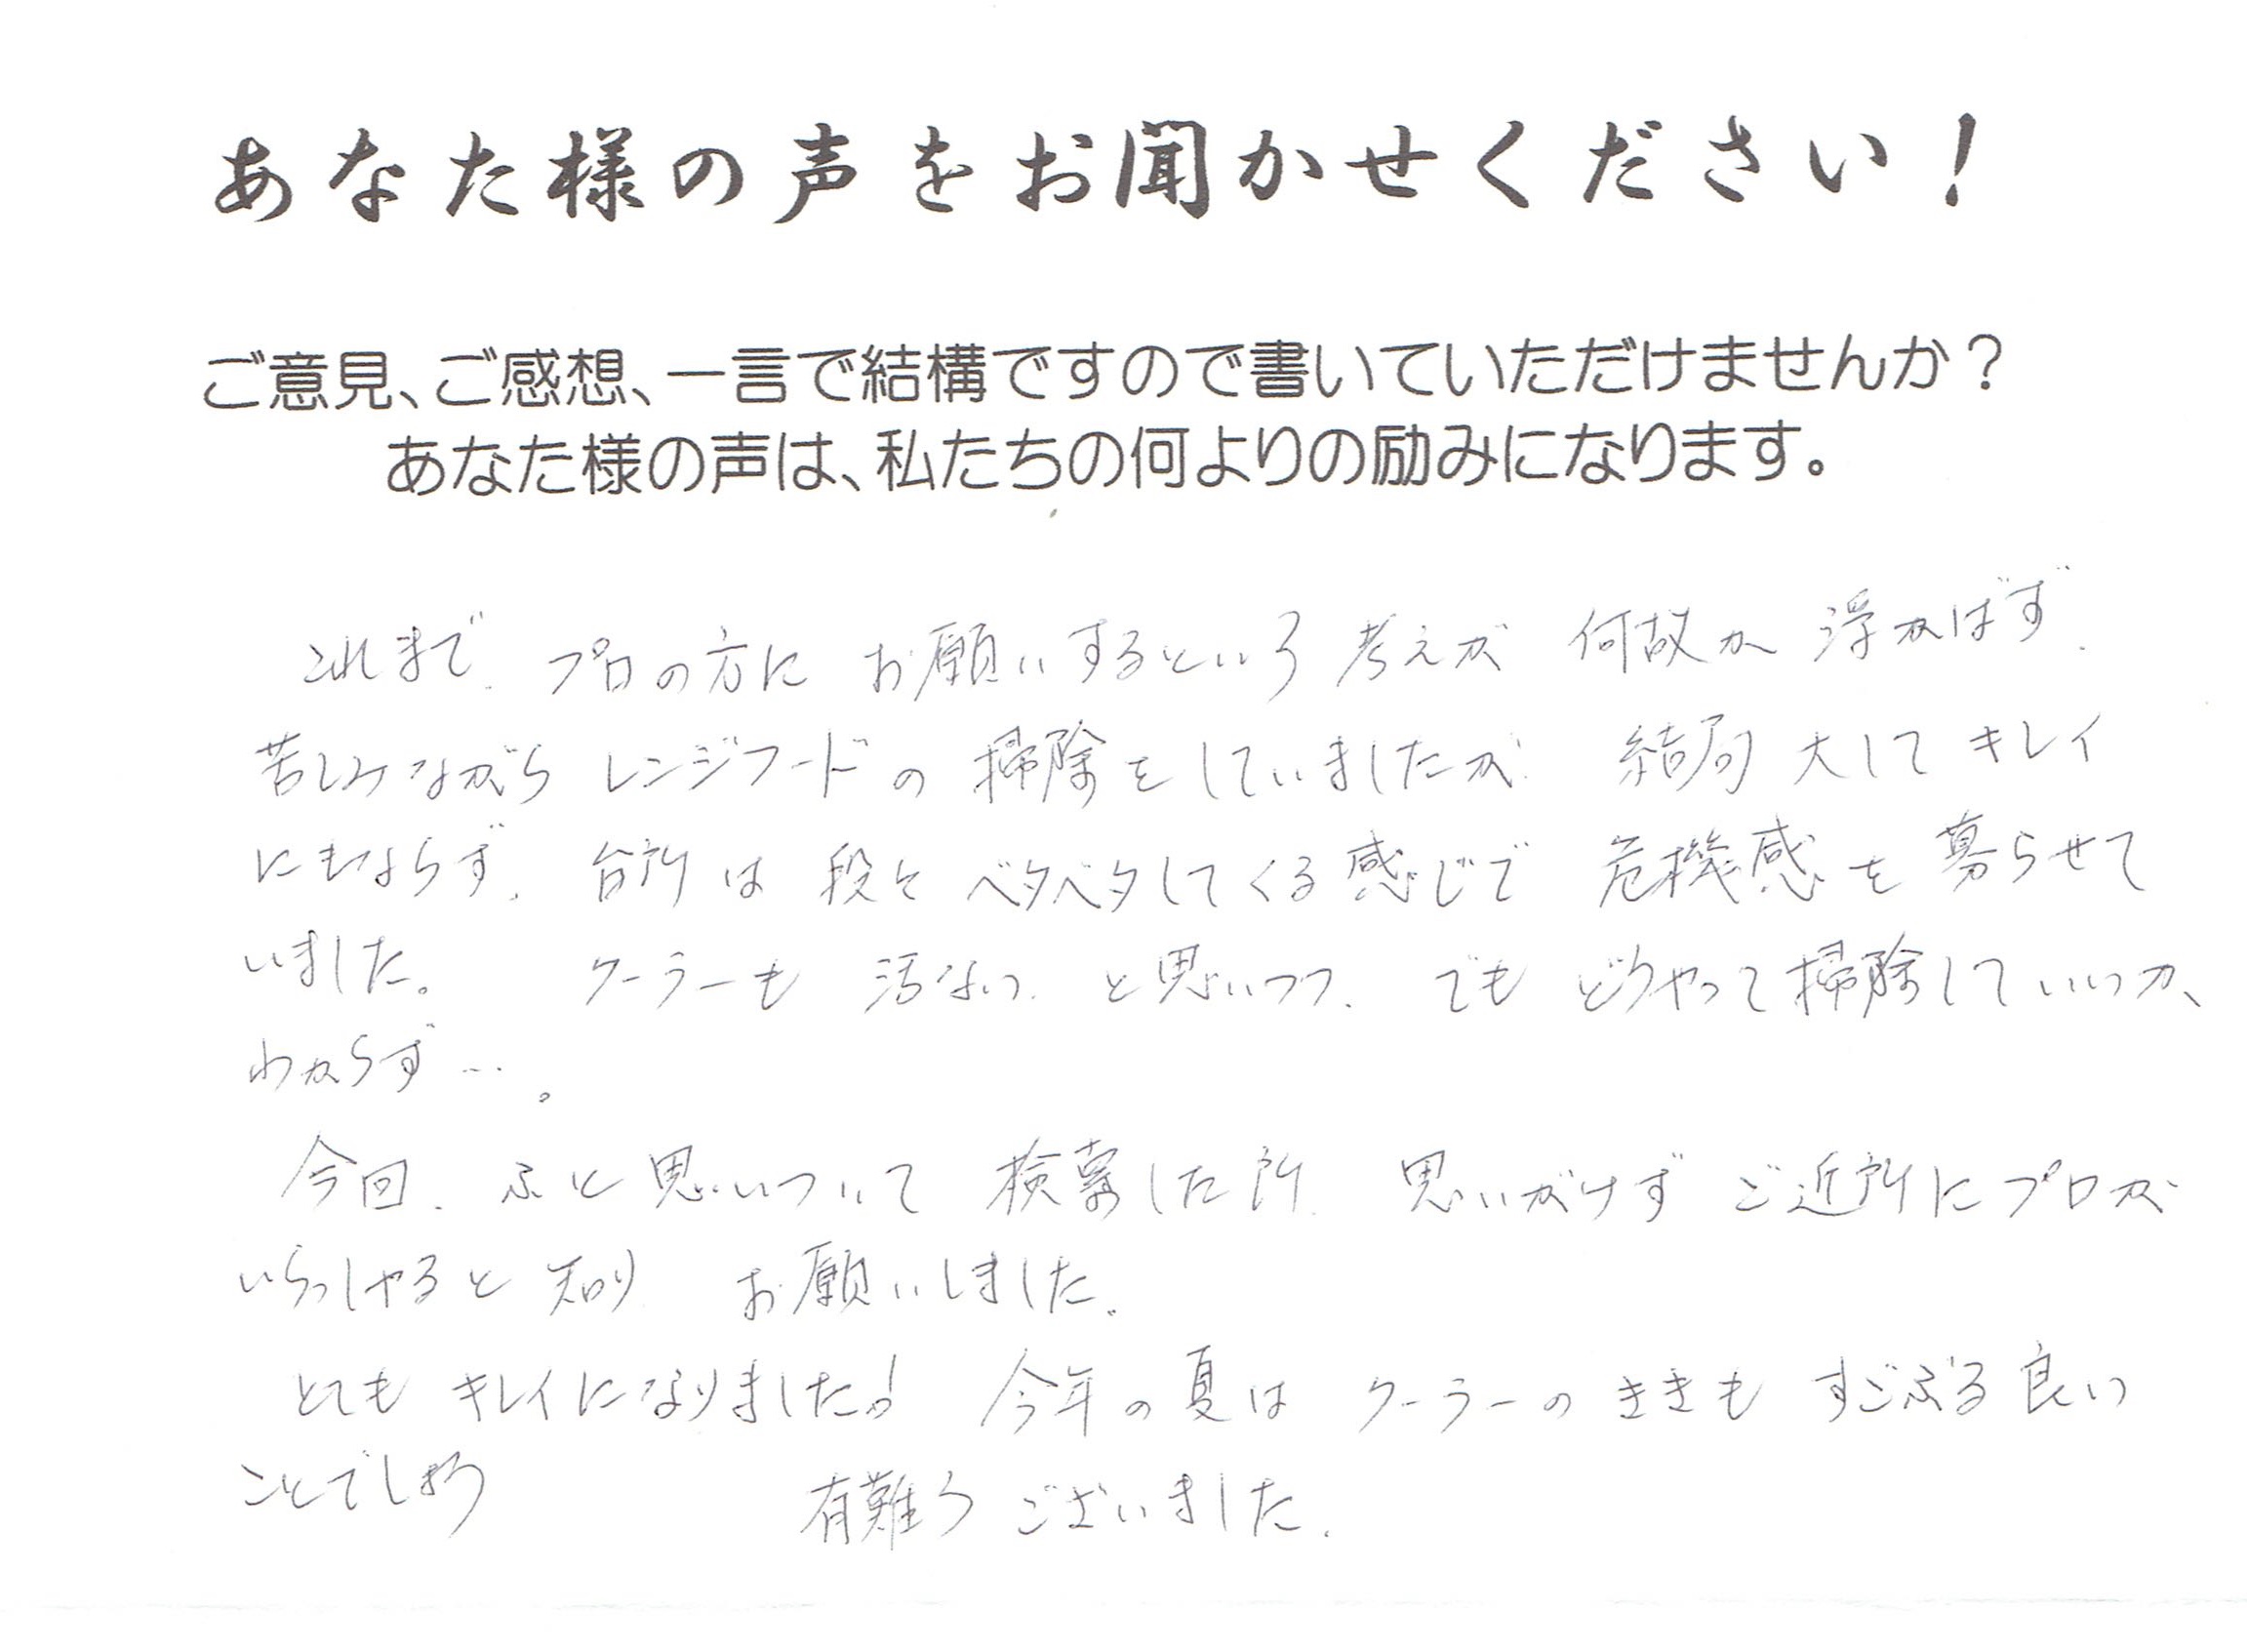 あなた様の声をお聞かせください！
ご意見、ご感想、一言で結構ですので書いていただけませんか？
あなた様の声は、私たちの何よりの励みになります。
これまで、プロの方に お願いするという 考えが 何故か 浮かばず、
苦しみながら レンジフードの 掃除をしていましたが、結局 大して キレイ
にもならず、台所は 段々 ベタベタしてくる感じで 危機感を 募らせて
いました。 クーラーも 汚ないっ、と思いつつ、でも どうやって掃除していいか、
わからず…。
今回、ふと思いついて 検索した所、思いがけず ご近所にプロが
いらっしゃると 知り、お願いしました。
とても キレイになりました！ 今年の夏は クーラーの ききも すごぶる良い
ことでしょう 有難う ございました。